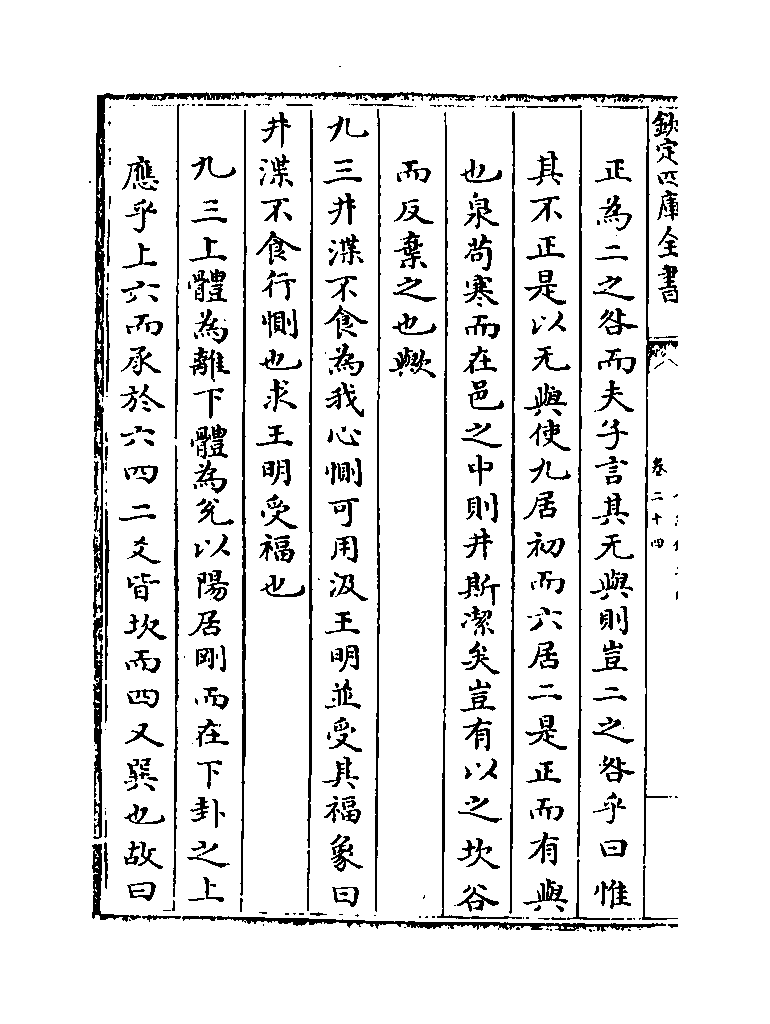 欽定四庫全書
卷二十四
正為二之咎而夫子言其无與則豈二之咎乎曰惟
其不正是以无與使九居初而六居二是正而有與
也泉茍寒而在邑之中則井斯潔矣豈有以之坎谷
而反棄之也歟
九三井渫不食為我心惻可用汲王明並受其福象曰
井渫不食行惻也求王明受福也
九三上體為離下體為兊以陽居剛而在下卦之上
應乎上六而承於六四二爻皆坎而四又巽也故曰